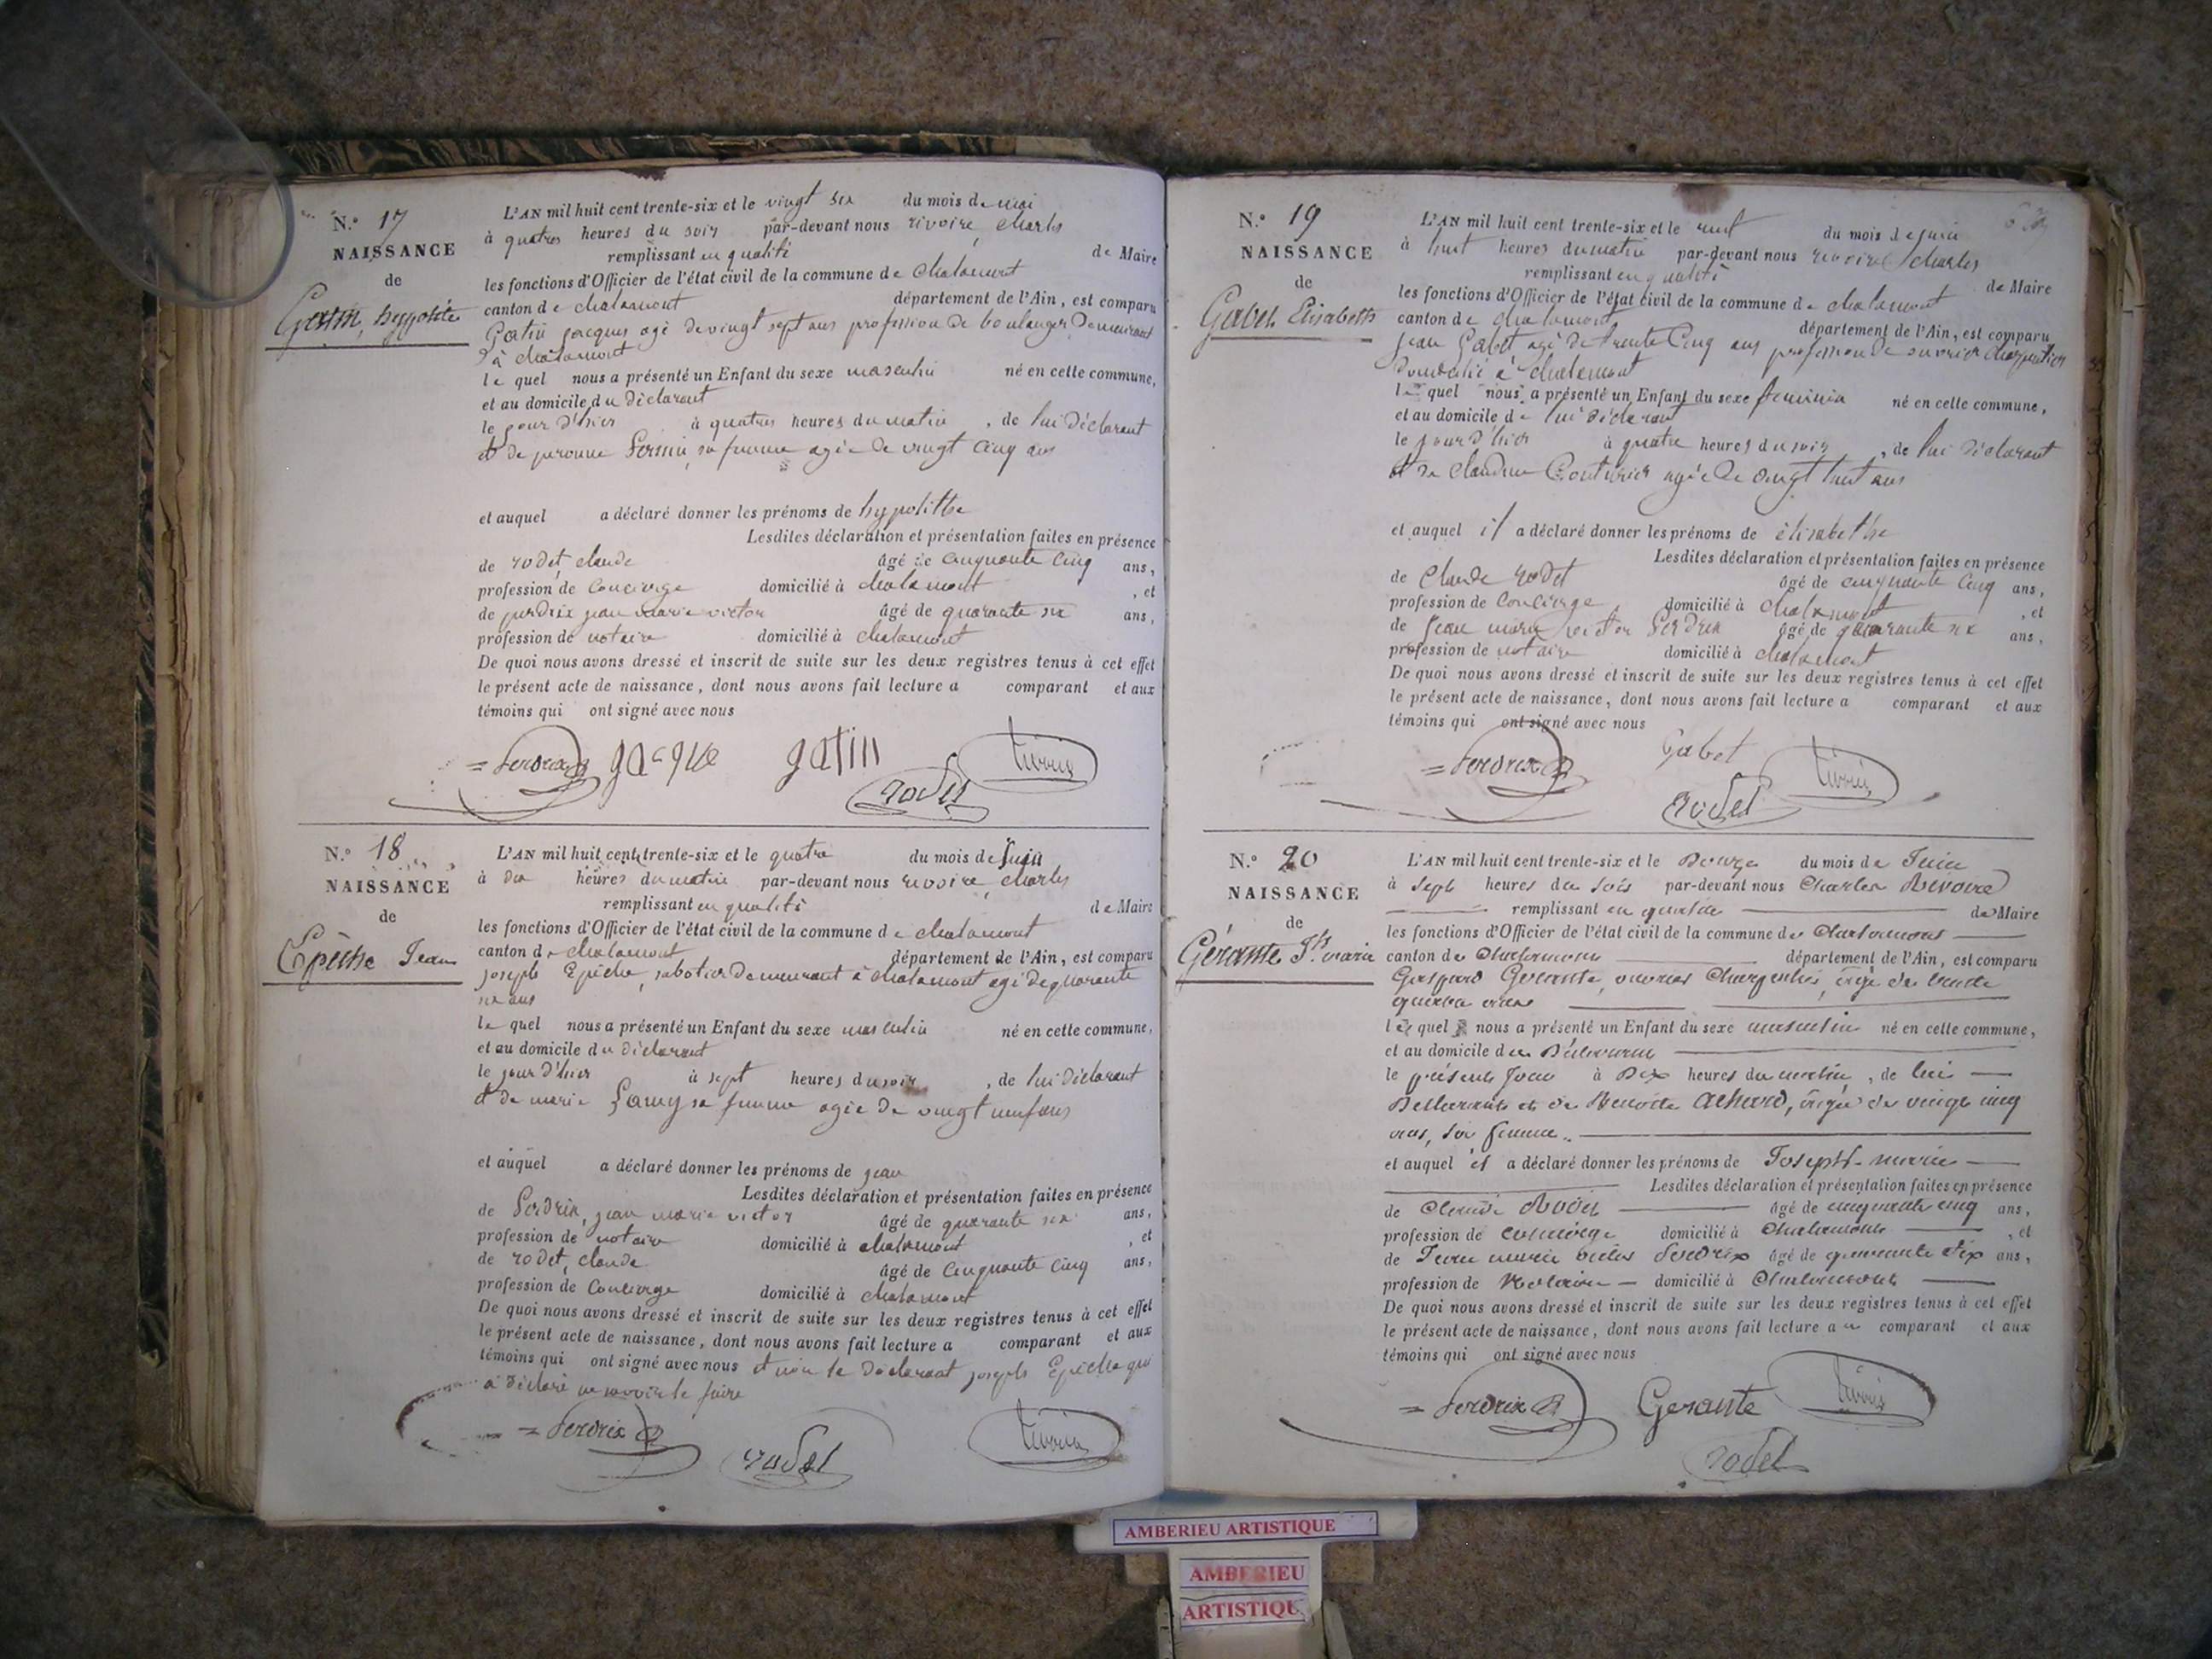 N.° 17
NAISSANCE
de
Gatin, hyppolite
L'AN mil huit cent trente-six et le vingt six du mois de mai
à quatres heures du soir par-devant nous rivoire, charles
remplissant en qualité de Maire
les fonctions d'Officier de l'état civil de la commune de chalamont
canton de chalamont département de l'Ain, est comparu
Gatin jacques agé de vingt sept ans profession de boulanger demeurant
à chalamont
le quel nous a présenté un Enfant du sexe masculin né en cette commune,
et au domicile du déclarant
le jour d'hier à quatres heures du matin, de lui déclarant
et de peronne Pernin sa femme agée de vingt cinq ans
et auquel a déclaré donner les prénoms de hypolithe
Lesdites déclaration et présentation faites en présence
de rodet, claude âgé de cinquante cinq ans,
profession de concierge domicilié à chalamont, et
de perdrix jean marie victor âgé de quarante six ans,
profession de notaire domicilié à chalamont
De quoi nous avons dressé et inscrit de suite sur les deux registres tenus à cet effet
le présent acte de naissance, dont nous avons fait lecture a comparant et aux
témoins qui ont signé avec nous
Perdrix gacque gatin rivoire
rodet
N.° 18
NAISSANCE
de
Epèche Jean
L'AN mil huit cent trente-six et le quatre du mois de Juin
à dix heures du matin par-devant nous rivoire, charles
remplissant en qualité de Maire
les fonctions d'Officier de l'état civil de la commune de chalamont
canton de chalamont département de l'Ain, est comparu
joseph Epèche, sabotier demeurant à chalamont agé de quarante
six ans
le quel nous a présenté un Enfant du sexe masculin né en cette commune,
et au domicile du déclarant
le jour d'hier à sept heures du soir, de lui déclarant
et de marie Lamy sa femme agée de vingt neuf ans
et auquel a déclaré donner les prénoms de jean
Lesdites déclaration et présentation faites en présence
de Perdrix, jean marie victor âgé de quarante six ans,
profession de notaire domicilié à chalamont, et
de rodet, claude âgé de cinquante cinq ans,
profession de concierge domicilié à chalamont
De quoi nous avons dressé et inscrit de suite sur les deux registres tenus à cet effet
le présent acte de naissance, dont nous avons fait lecture a comparant et aux
témoins qui ont signé avec nous et non le déclarant joseph Epèche qui
a déclaré ne savoir le faire
Perdrix rodet rivoire
N.° 19
NAISSANCE
de
Gabet Elisabeth
L'AN mil huit cent trente-six et le neuf du mois de juin
à huit heures du matin par-devant nous rivoire charles
remplissant en qualité de Maire
les fonctions d'Officier de l'état civil de la commune de chalamont
canton de chalamont département de l'Ain, est comparu
jean Gabet agé de trente cinq ans profession de ouvrier charpentier
domicilié à chalamont
le quel nous a présenté un Enfant du sexe feminin né en cette commune,
et au domicile de lui déclarant
le jour d'hier à quatre heures du soir, de lui déclarant
et de claudine Couturier agée de vingt huit ans
et auquel il a déclaré donner les prénoms de élisabethe
Lesdites déclaration et présentation faites en présence
de claude rodet âgé de cinquante cinq ans,
profession de concierge domicilié à chalamont, et
de jean marie victor Perdrix âgé de quarante six ans,
profession de notaire domicilié à chalamont
De quoi nous avons dressé et inscrit de suite sur les deux registres tenus à cet effet
le présent acte de naissance, dont nous avons fait lecture a comparant et aux
témoins qui ont signé avec nous
Perdrix Gabet rivoire
rodet
N.° 20
NAISSANCE
de
Gérante Jh. marie
L'AN mil huit cent trente-six et le Douze du mois de Juin
à Sept heures du soir par-devant nous Charles Rivoire
remplissant en qualité de Maire
les fonctions d'Officier de l'état civil de la commune de Chalamont
canton de Chalamont département de l'Ain, est comparu
Gaspard Gerante, ouvrier Charpentier, âgé de trente
quatre ans
le quel nous a présenté un Enfant du sexe masculin né en cette commune,
et au domicile du Déclarant
le présent jour à Dix heures du matin, de lui
Déclarant et de Benoite Achard, âgée de vingt cinq
ans, sa femme.
et auquel il a déclaré donner les prénoms de Joseph-marie
Lesdites déclaration et présentation faites en présence
de Claude Rodet âgé de cinquante cinq ans,
profession de concierge domicilié à Chalamont, et
de Jean marie victor Perdrix âgé de quarante six ans,
profession de Notaire domicilié à Chalamont
De quoi nous avons dressé et inscrit de suite sur les deux registres tenus à cet effet
le présent acte de naissance, dont nous avons fait lecture a u comparant et aux
témoins qui ont signé avec nous
Perdrix Gerante rivoire
rodet
AMBERIEU ARTISTIQUE
AMBERIEU
ARTISTIQUE